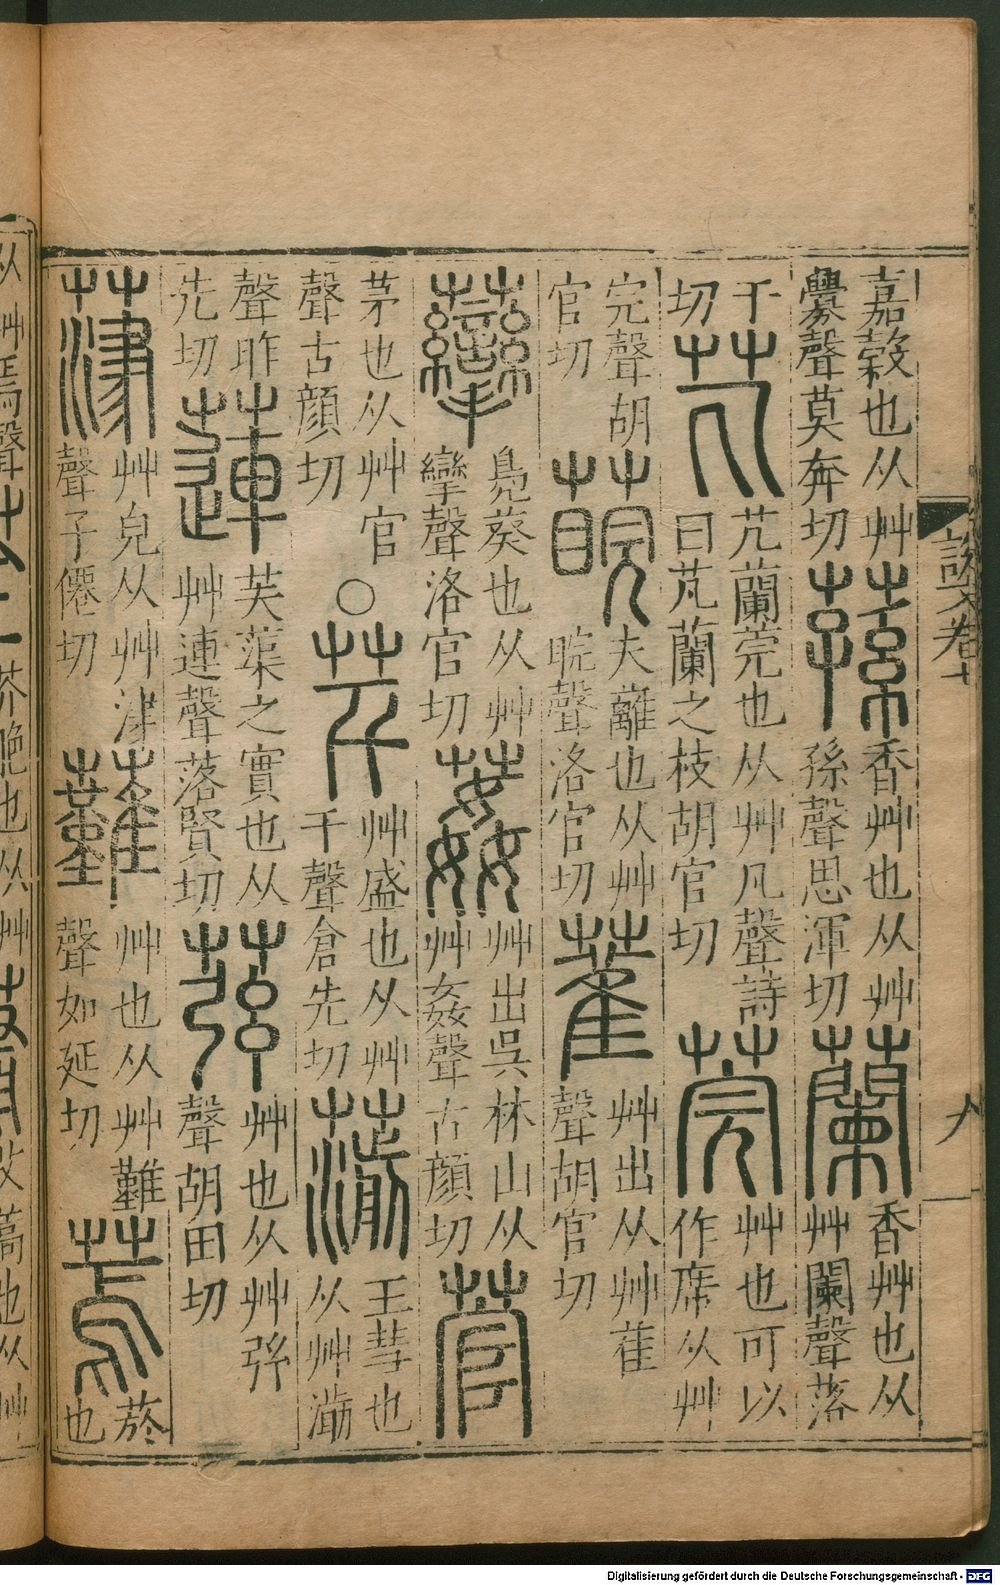 嘉穀也从艸釁聲莫奔切 蓀 香艸也从艸孫聲思渾切 蘭 香艸也从艸闌聲落
干切 芄 芄蘭莞也从艸凡聲詩曰芃蘭之枝胡官切 莞 艸也可以作席从艸
完聲胡官切 夫離也从艸睆聲洛官切 萑 艸出从艸萑聲胡官切
虊 鳧葵也从艸攣聲洛官切 葌 艸出吳林山从艸姦聲古顏切 菅
茅也从艸官聲古顏切 ○ 芊 艸盛也从艸千聲倉先切 葥 王彗也从艸湔
聲昨先切 蓮 芙蕖之實也从艸連聲落賢切 艸也从艸弦聲胡田切
葏 艸皃从艸津聲子僊切 艸也从艸難聲如延切 蔫 菸也
說文卷十
Digitalisierung gefördert durch die Deutsche Forschungsgemeinschaft - DFG